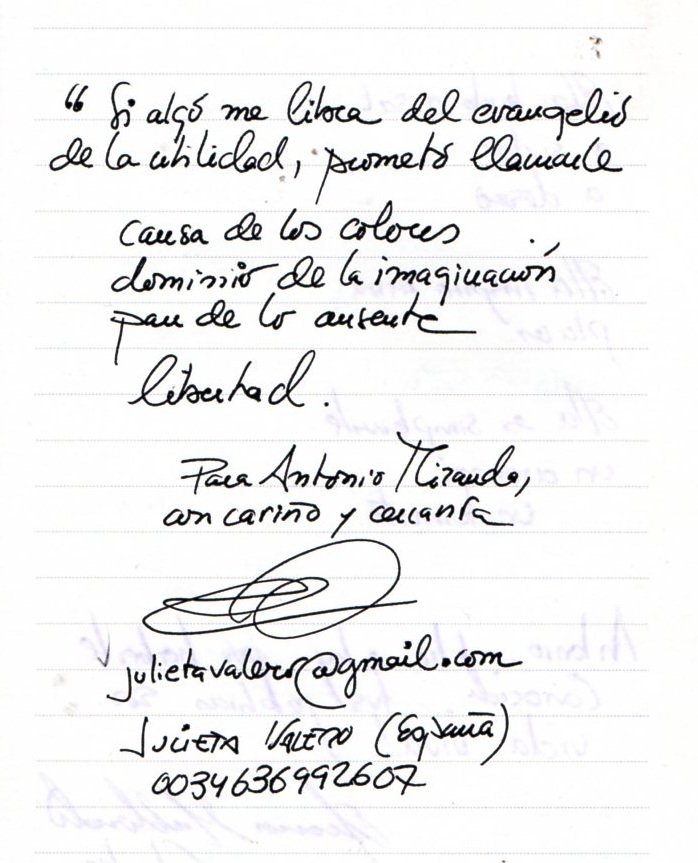 “ Si algo me libra del evangelio
de la utilidad, prometo llamarle
causa de los colores
dominio de la imaginación
pan de lo ausente
libertad.
Para Antonio Miranda,
con cariño y cercanía
julietavalero@gmail.com
JULIETA VALERO (España)
0034636992607